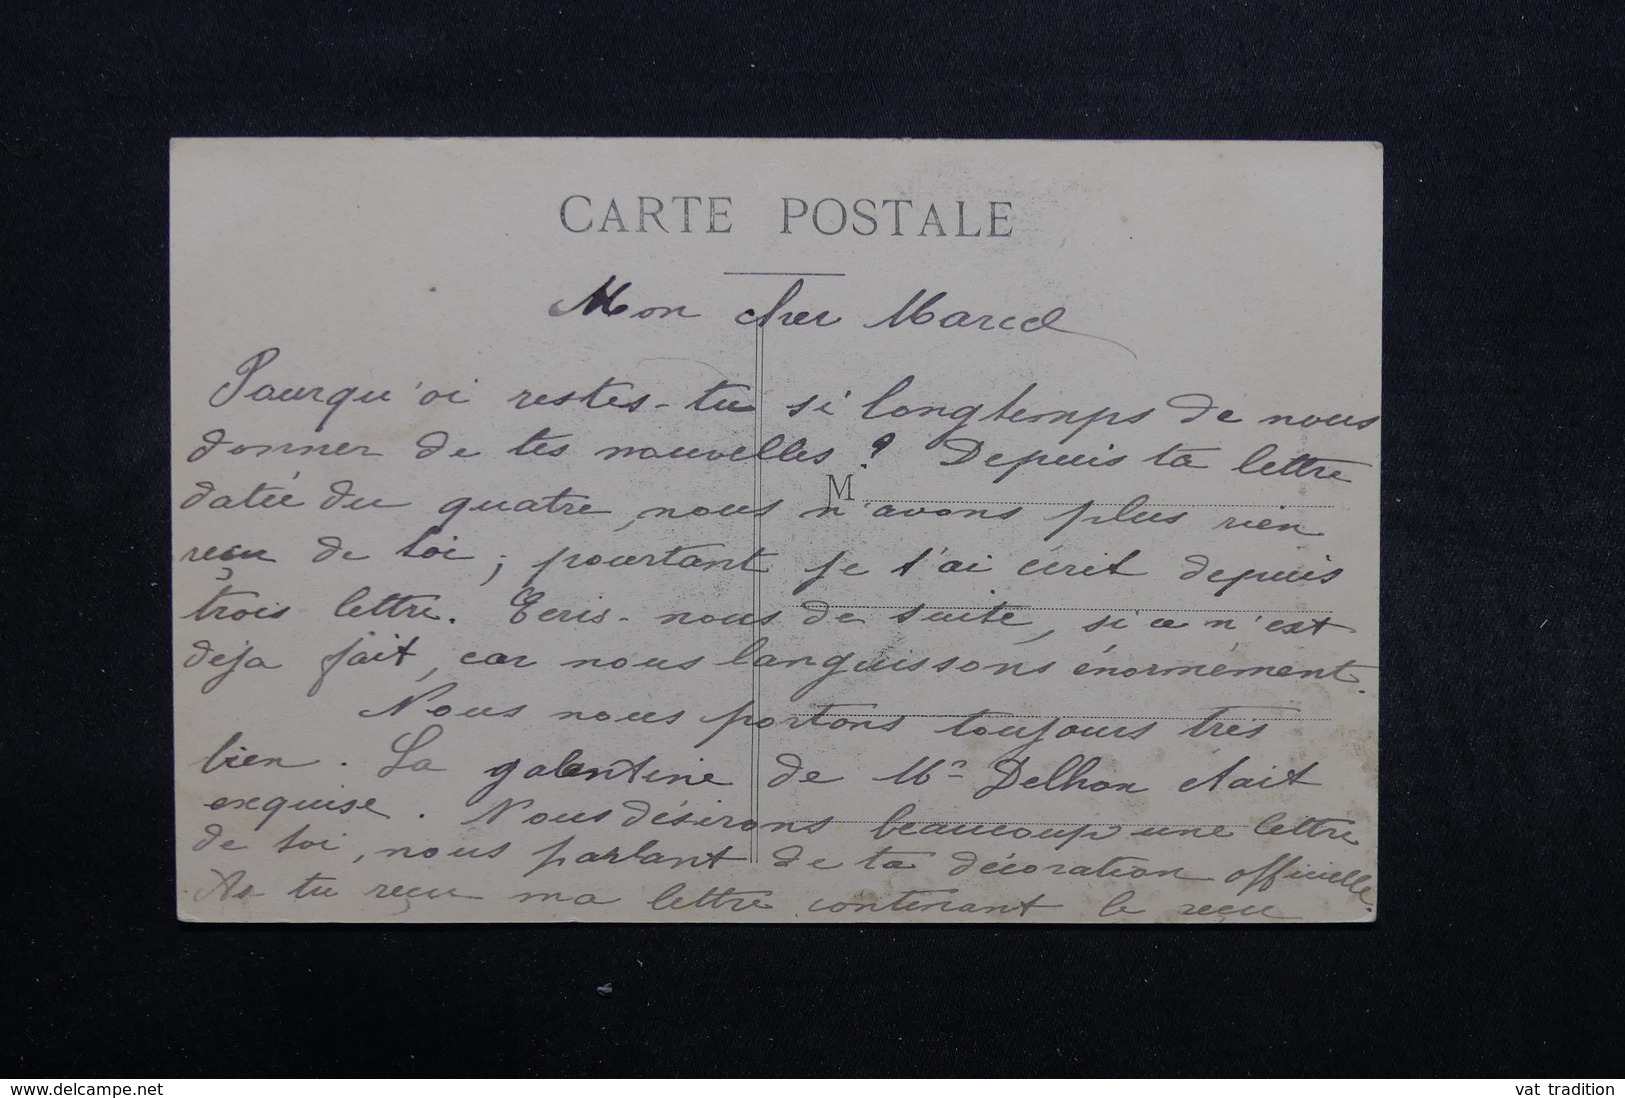 CARTE POSTALE
Mon cher Marcel
Pourqu'oi restes-tu si longtemps de nous
donner de tes nouvelles ? Depuis ta lettre
M
datée du quatre, nous n'avons plus rien
reçu de toi ; pourtant je t'ai écrit depuis
trois lettre. Ecris-nous de suite, si ce n'est
deja fait, car nous languissons énormément.
Nous nous portons toujours très
bien. La galentine de Mr Delhon etait
exquise. Nous désirons beaucoup une lettre
de toi, nous parlant de ta décoration officielle.
As tu reçu ma lettre contenant le reçu
www.delcampe.net
vat tradition